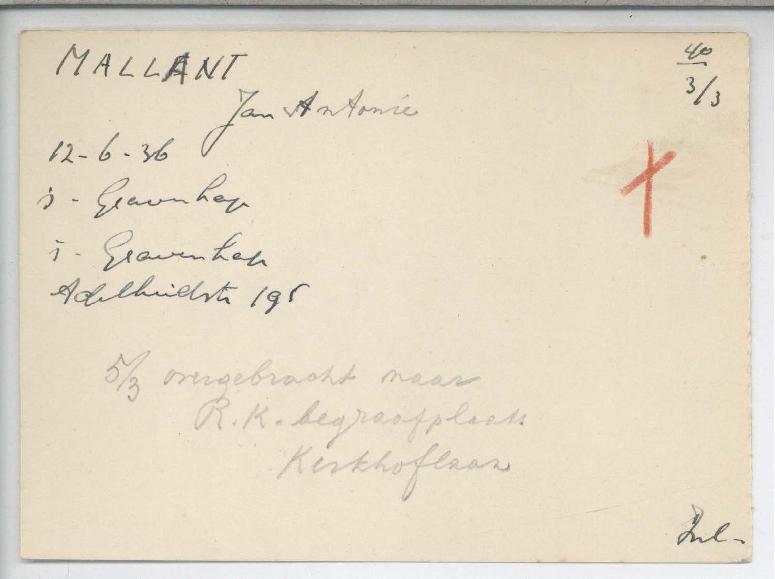 MALLANT
40
3/3
Jan Antonie
12-6-36
s-Gravenhage
s-Gravenhage
Adelheidstr 195
5/3 overgebracht naar
R.K. begraafplaats
Kerkhoflaan